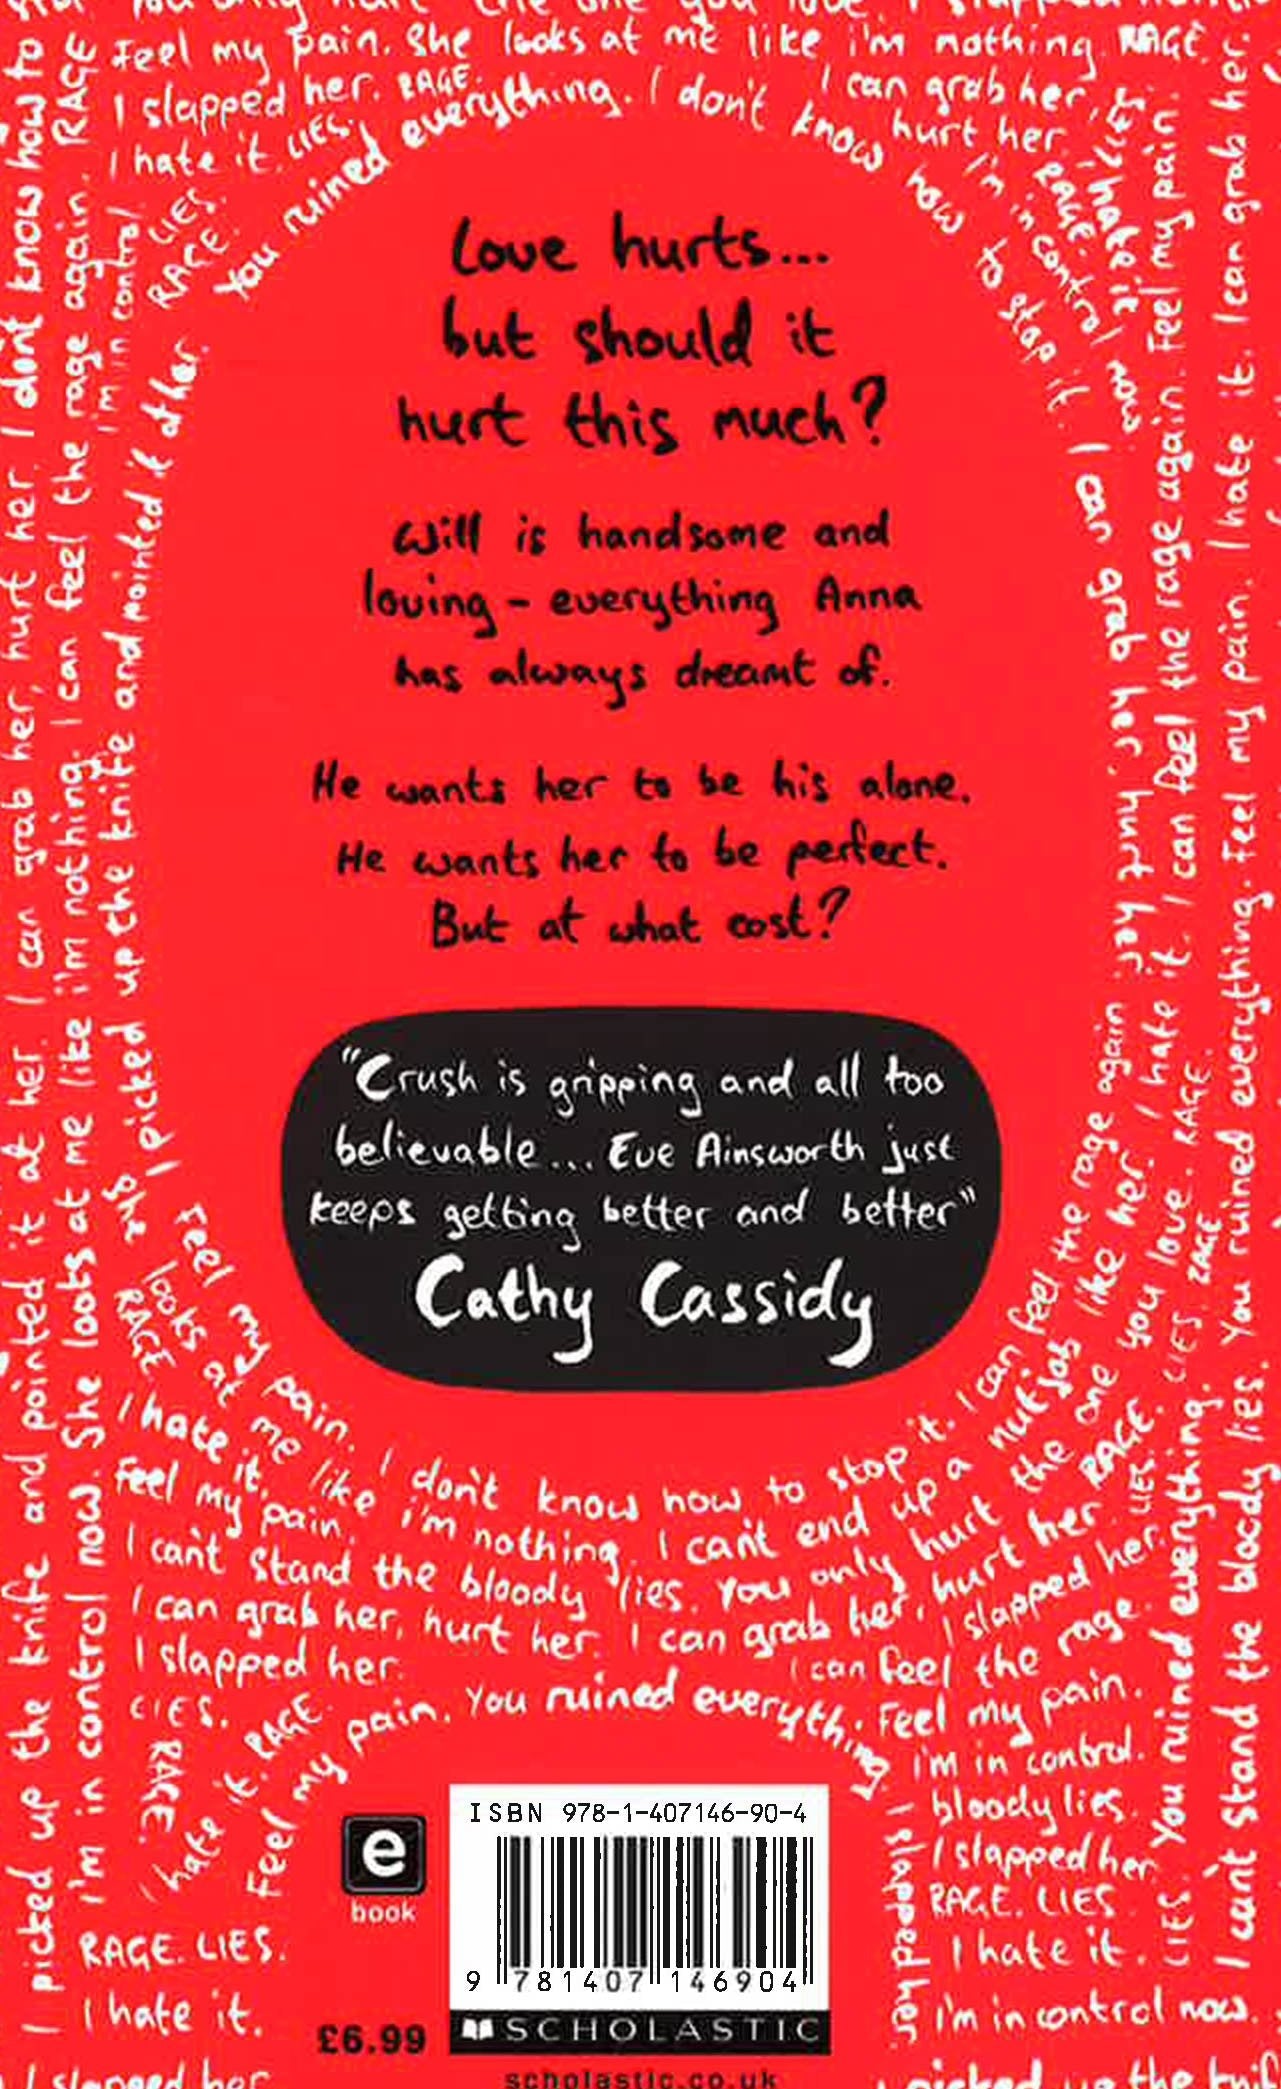 You only hurt the one you love. I slapped
Feel my pain. She looks at me like i'm nothing. RAGE.
I slapped her. RAGE.
I can grab her,
hurt her
I hate it. LIES.
LIES.
RAGE.
I'm in control
RAGE.
I'm in control now
I hate it
You ruined everything. I don't know how to stop it. I can grab her, hurt her.
Love hurts...
but should it
hurt this much?
Will is handsome and
loving – everything Anna
has always dreamt of.
He wants her to be his alone.
He wants her to be perfect.
But at what cost?
"Crush is gripping and all too
believable... Eve Ainsworth just
keeps getting better and better"
Cathy Cassidy
I picked up the knife and pointed it at her. I can grab her, hurt her. I don't know how to
i'm in control now. She looks at me like i'm nothing. I can feel the rage again. RAGE
I picked up the knife and pointed it at her.
I hate it. I can feel the rage again. Feel my pain.
I can't stand the bloody lies. You ruined everything. Feel my pain. I hate it. I can grab her.
LIES. You ruined everything. LIES. RAGE
Feel my pain. I don't know how to stop it. I can feel the rage again
She looks at me like i'm nothing. I can't end up a nutjob like her.
RAGE
I hate it.
Feel my pain.
I can't stand the bloody lies. You only hurt the one you love. RAGE.
I can grab her, hurt her. I can grab her, hurt her. RAGE.
LIES.
I slapped her.
I slapped her.
I can feel the rage.
LIES.
RAGE.
I hate it. RAGE.
Feel my pain. You ruined everything.
Feel my pain.
I'm in control.
bloody lies.
I slapped her
RAGE. LIES
I hate it.
i'm in control now.
I slapped her.
RAGE. LIES.
I hate it.
I slapped her
picked up the knif
e
book
£6.99
ISBN 978-1-407146-90-4
9 781407 146904
SCHOLASTIC
scholastic.co.uk